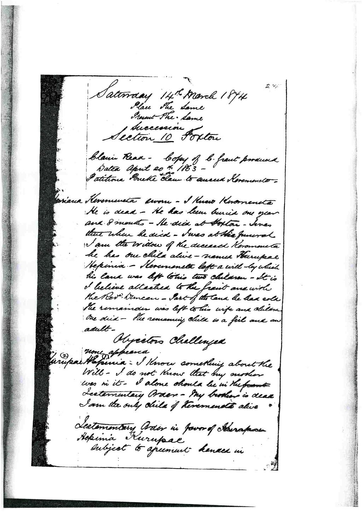 Saturday 14th March 1874
Place The Same
Present The Same
Succession
Section 10 Foxton
Claim Read - Copy of C. Grant produced
Dated April 20th 1863 -
sworn - I knew Keremeneta
He is dead - He has been buried one year
and 8 months - He died at Foxton - I was
there when he died - I was at his funeral
I am the widow of the deceased Keremeneta
he has one child alive - named Kurupae
Hepinia - Keremeneta left a will by which
his land was left to his two children - It is
I believe attached to the Grant and with
the Revd Duncan - Part of the land he had sold
the remainder was left to his wife and children
one died - the remaining child is a girl and an
adult -
Objectors Challenged
none appeared
Kurupae Hepinia : I know something about the
Will - I do not know that my mother
was in it - I alone should be in the
Testamentary Order - My brother is dead
I am the only child of Keremeneta alive
Testamentary Order in favor of
Hepinia Kurupae
Subject to agreement handed in